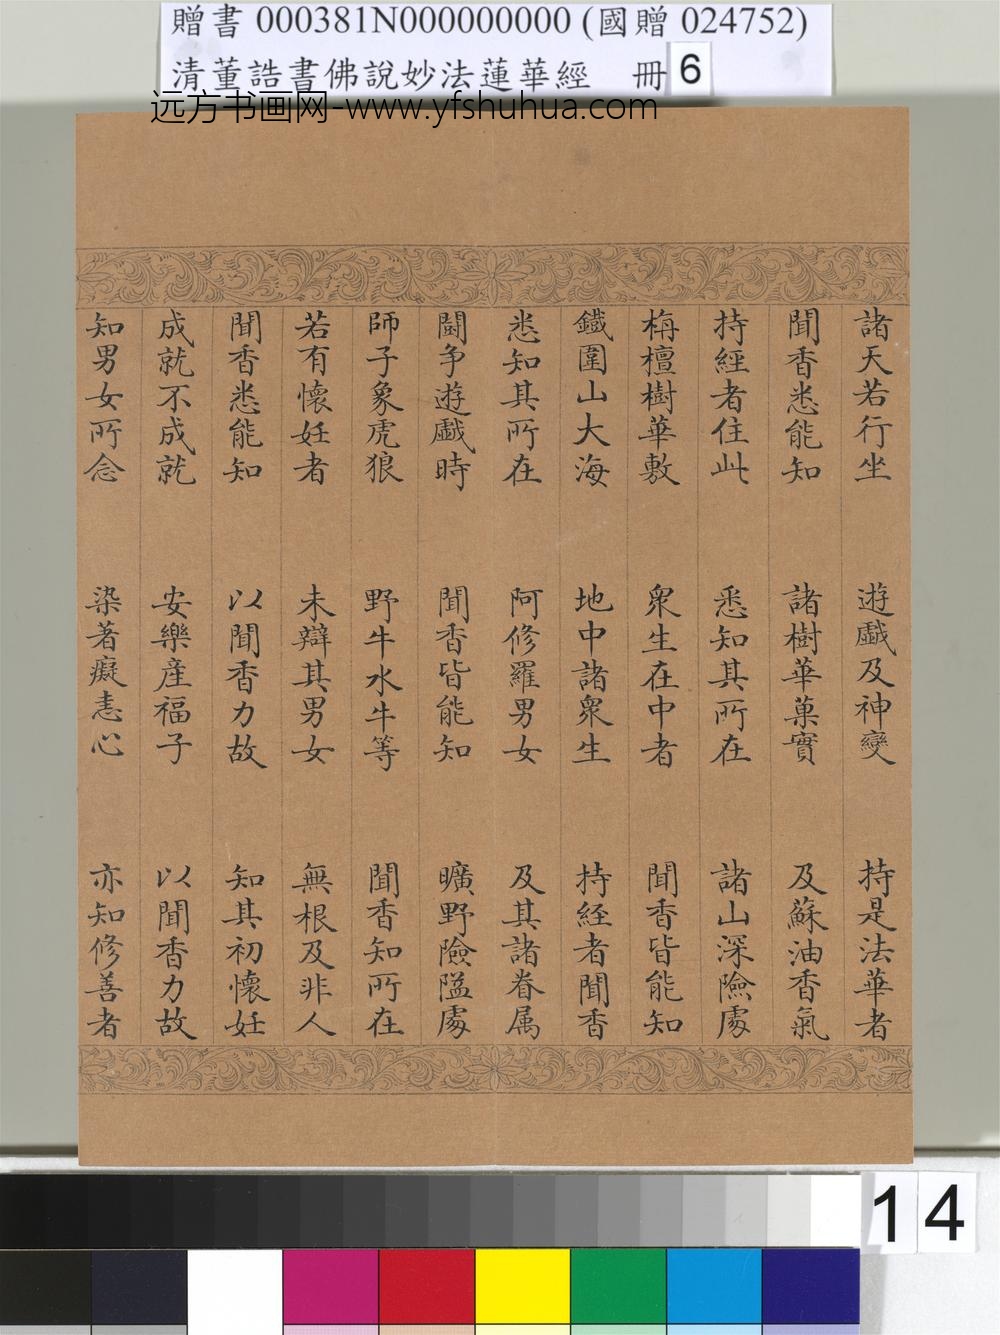 贈書 000381N000000000 (國贈 024752)
清董誥書佛說妙法蓮華經 冊 6
远方书画网-www.yfshuhua.com
諸天若行坐 遊戲及神變 持是法華者
聞香悉能知 諸樹華菓實 及蘇油香氣
持經者住此 悉知其所在 諸山深險處
栴檀樹華敷 眾生在中者 聞香皆能知
鐵圍山大海 地中諸眾生 持経者聞香
悉知其所在 阿修羅男女 及其諸眷属
鬪爭遊戲時 聞香皆能知 曠野險隘處
師子象虎狼 野牛水牛等 聞香知所在
若有懷妊者 未辯其男女 無根及非人
聞香悉能知 以聞香力故 知其初懷妊
成就不成就 安樂産福子 以聞香力故
知男女所念 染著癡恚心 亦知修善者
14